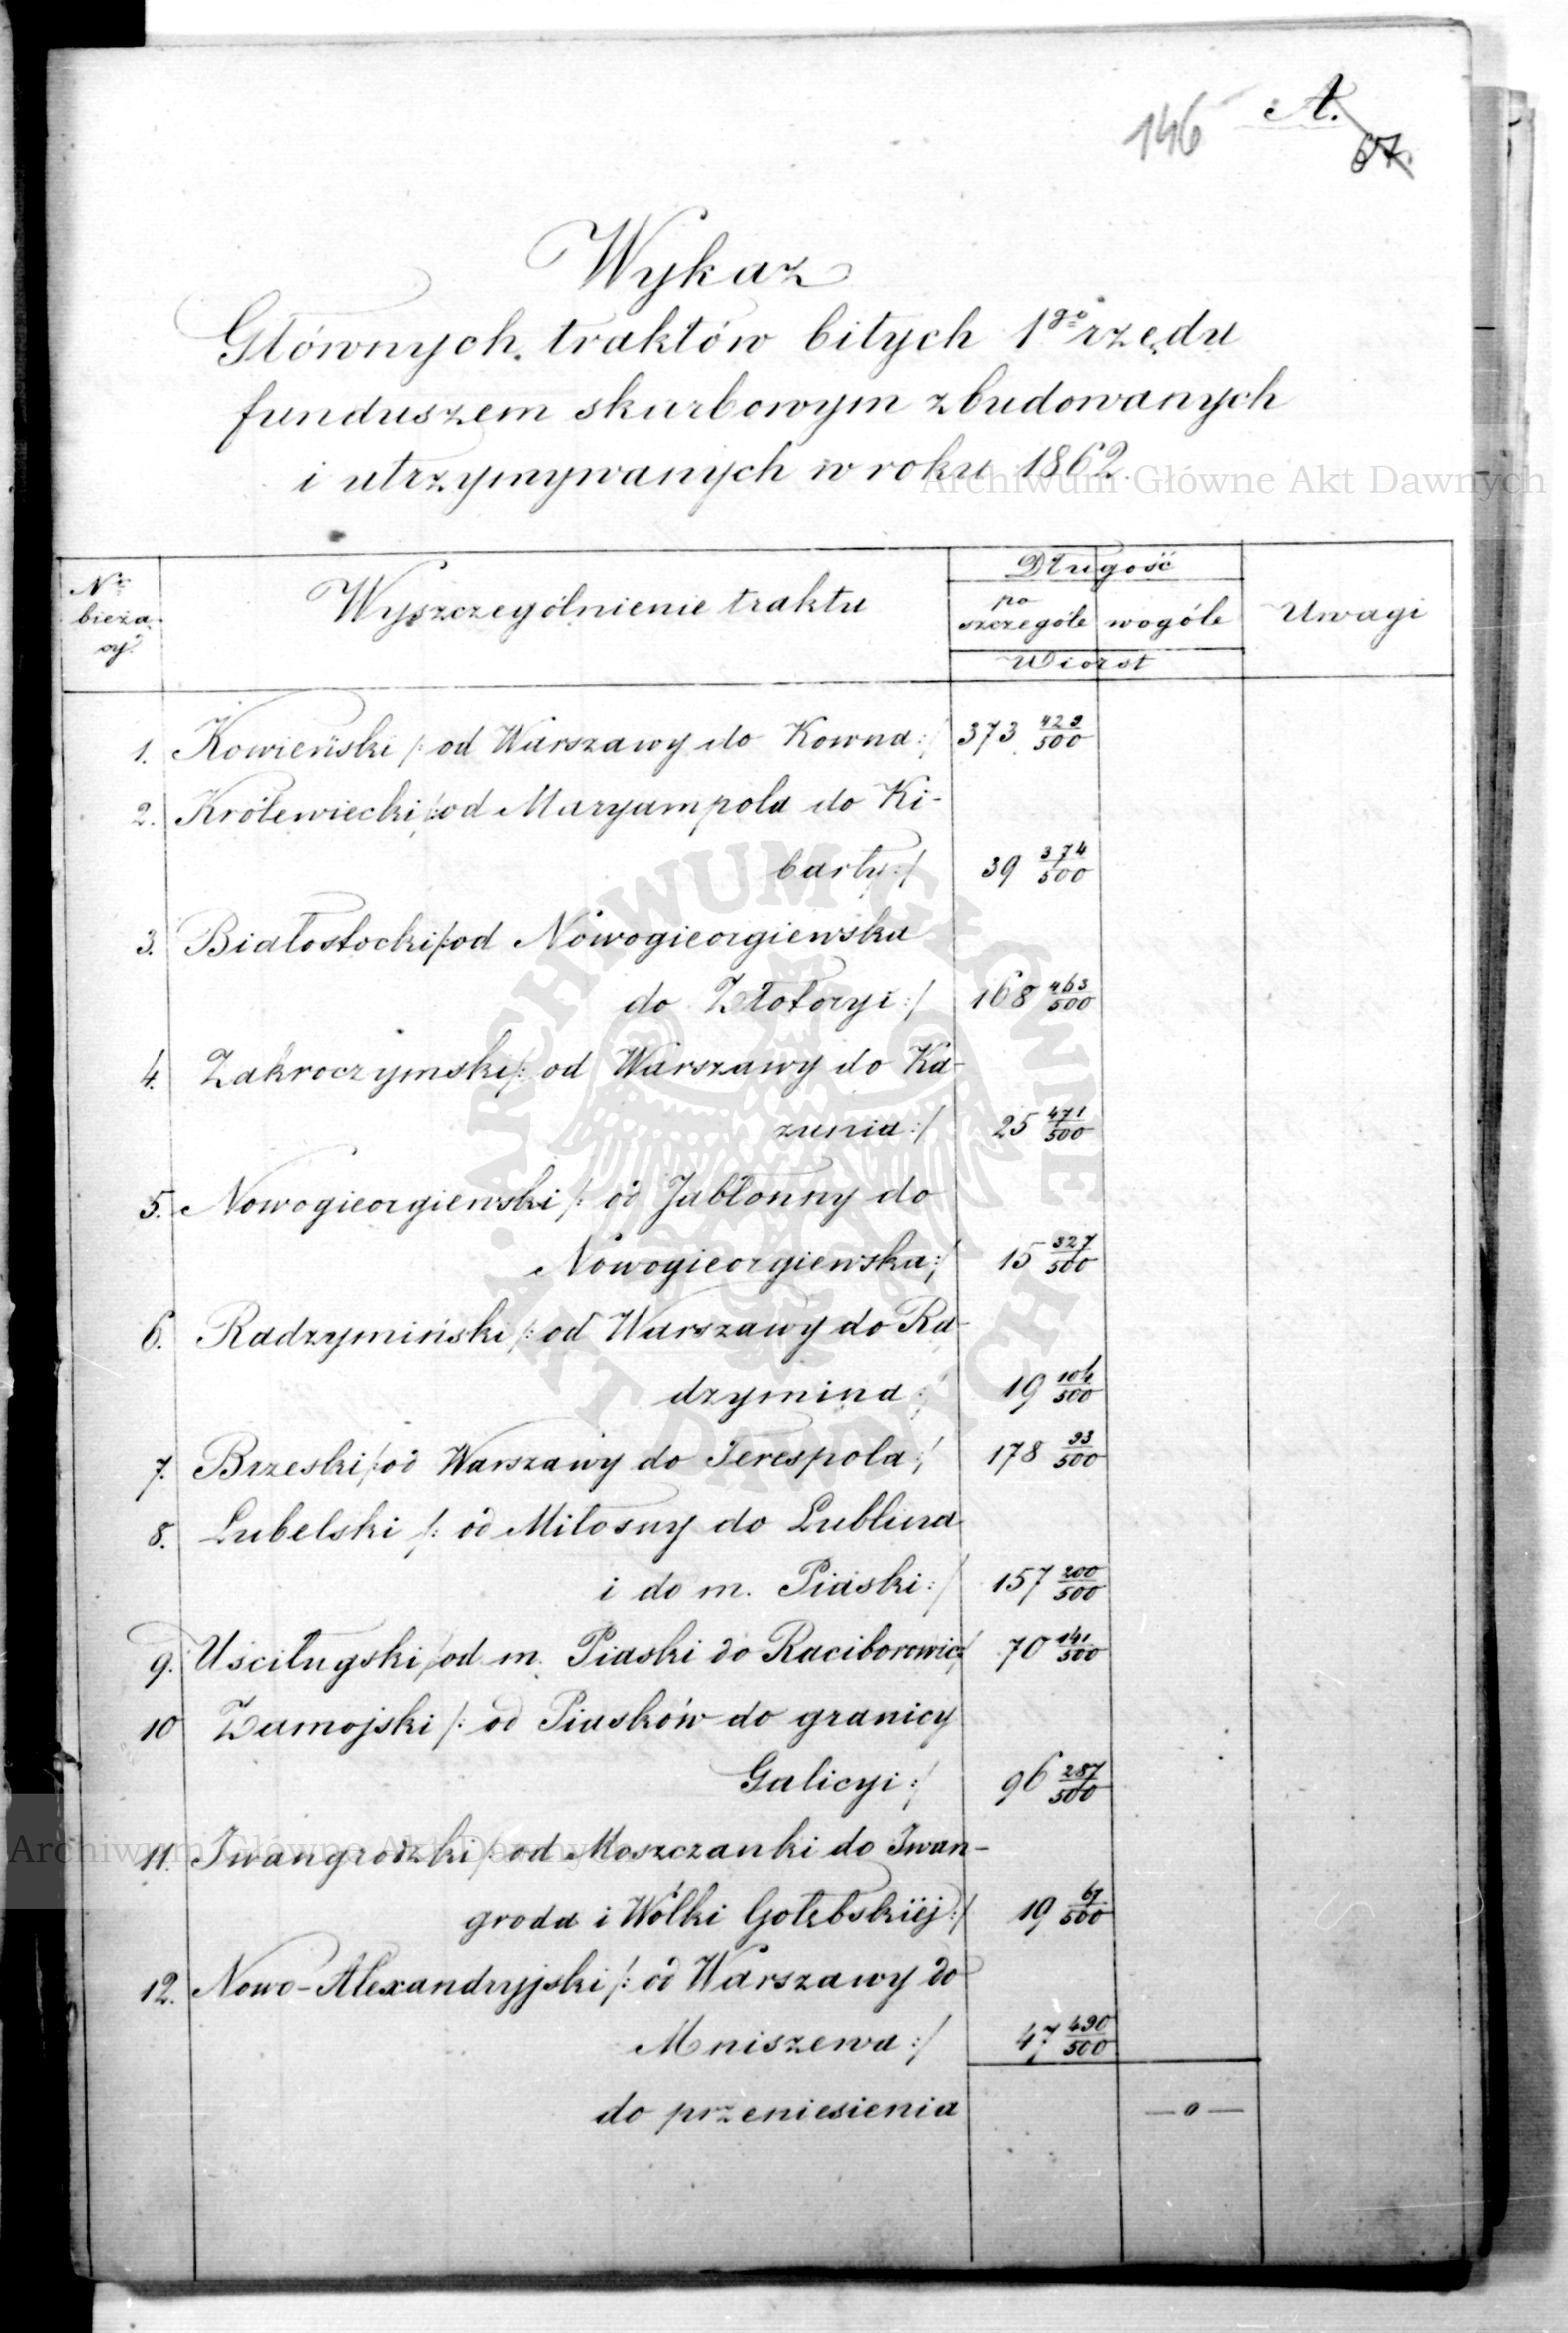 146 A.
67.
Wykaz
Głównych traktów bitych 1go rzędu
funduszem skarbowym zbudowanych
i utrzymywanych w roku 1862.
Archiwum Główne Akt Dawnych
Nr bieżą-cy Wyszczególnienie traktu Długość Uwagi
po szczególe wogóle
Wiorst
1. Kowieński /: od Warszawy do Kowna :/ 373 429/500
2. Królewiecki /: od Maryampola do Ki-
barty :/ 39 374/500
3. Białostocki /: od Nowogieorgiewska
do Złotoryi :/ 168 463/500
4. Zakroczymski /: od Warszawy do Ka-
zunia :/ 25 471/500
5. Nowogieorgiewski /: od Jabłonny do
Nowogieorgiewska :/ 15 327/500
6. Radzymiński /: od Warszawy do Ra-
dzymina :/ 19 104/500
7. Brzeski /: od Warszawy do Terespola :/ 178 93/500
8. Lubelski /: od Miłosny do Lublina
i do m. Piaski :/ 157 200/500
9. Uściługski /: od m. Piaski do Raciborowic :/ 70 141/500
10 Zamojski /: od Piasków do granicy
Galicyi :/ 96 287/500
11. Iwangrodzki /: od Moszczanki do Iwan-
groda i Wólki Gołębskiéj :/ 19 67/500
12. Nowo-Alexandryjski /: od Warszawy do
Mniszewa :/ 47 490/500
do przeniesienia — 0 —
ARCHIWUM GŁÓWNE AKT DAWNYCH
Archiwum Główne Akt Dawnych